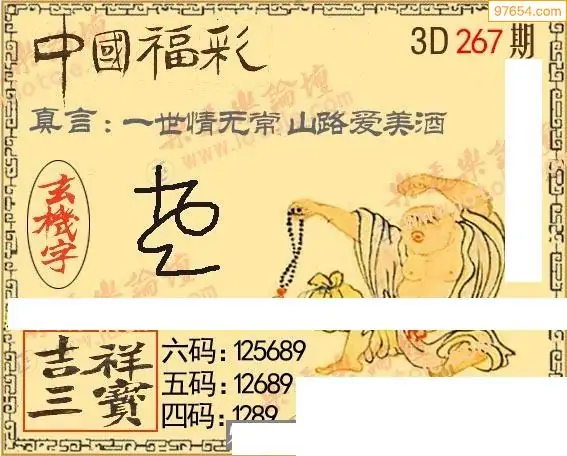 97654.com
中國福彩
3D 267 期
真言：一世情无常 山路爱美酒
玄機字
吉祥三寶
六码：125689
五码：12689
四码：1289